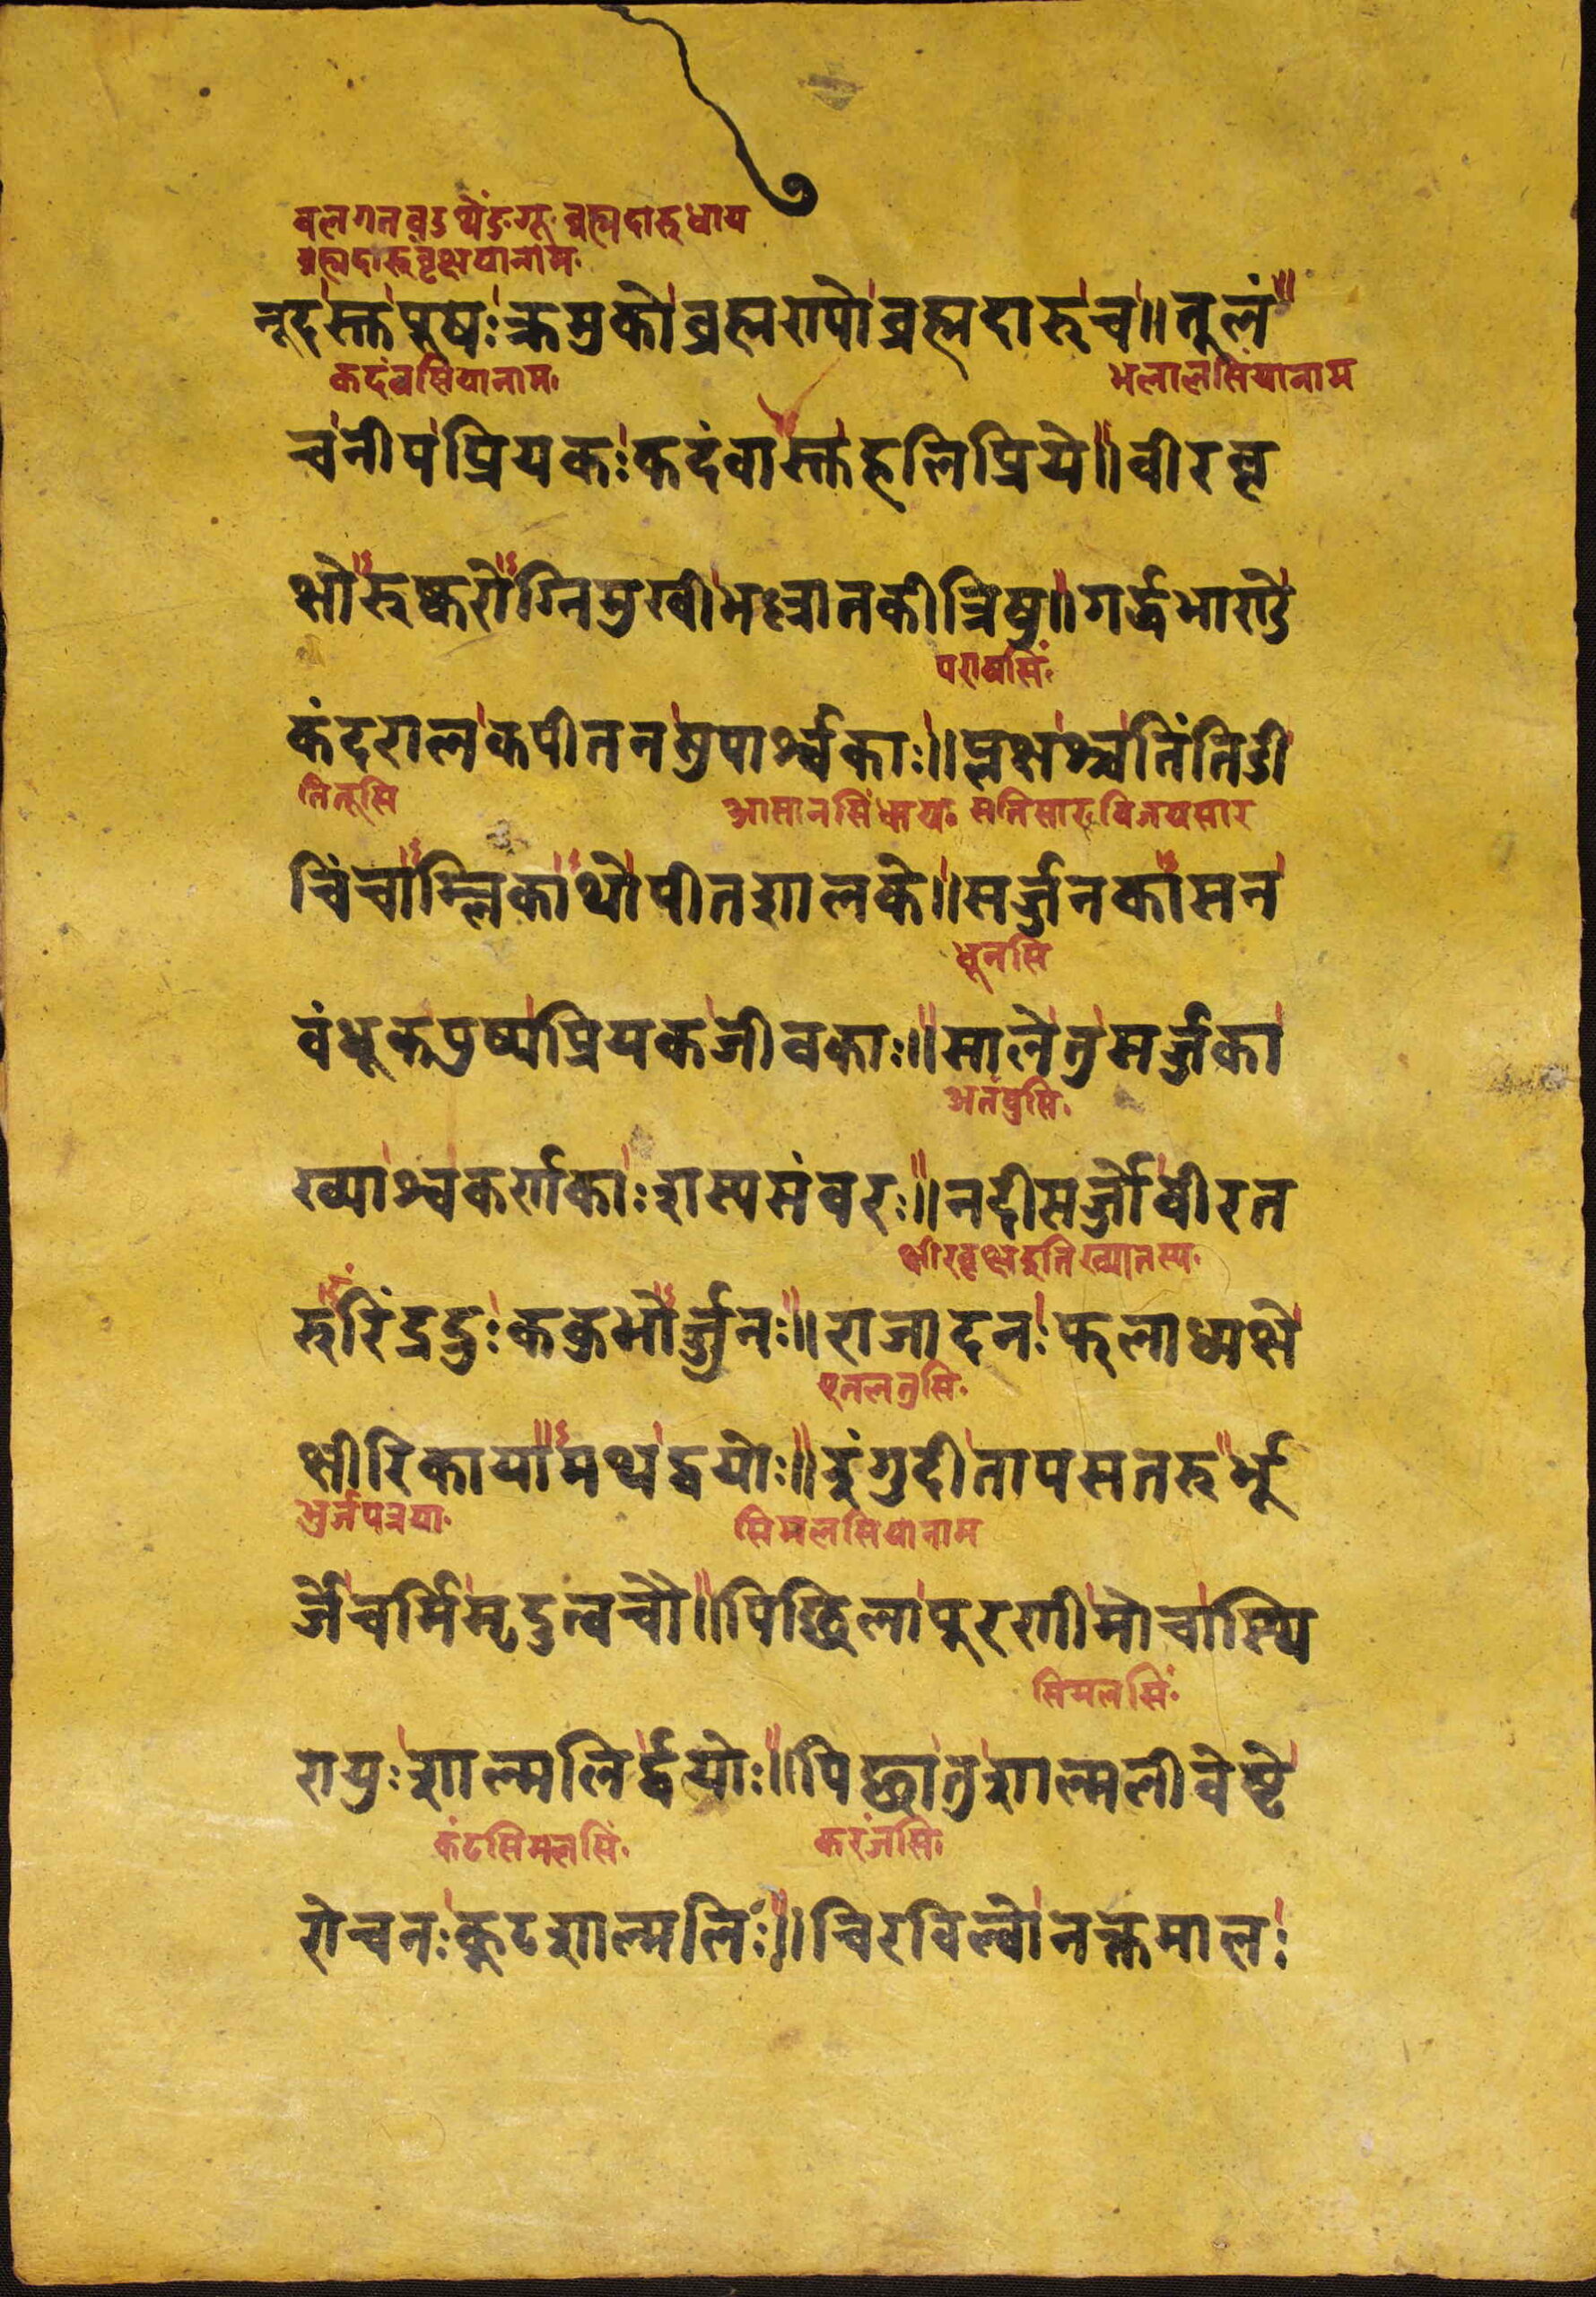 वलगतवउष्येंङगू. व्रह्मदारुधाय
व्रह्मदारुवृक्षयानाम.
नूदस्तुपूषःक्रमुकोव्रह्मरापोव्रह्मदारुच॥तूलं
कदंवसियानाम. भलालसिंयानाम
चनीपप्रियकःकदंवास्तुहलिप्रिये॥वीरवृ
क्षोरुष्करोग्निमुखीभल्लातकीत्रिषु॥गर्द्धभाराडे
पराषसिं.
कंदरालकपीतनसुपार्श्वकाः॥प्लक्षश्चतिंतिडी
तितूसि आसानसिंधाय. सतिसारु विजयसार
चिंचाम्लिकाथोपीतशालके॥सर्ज्जनकासन
धूनसि
वंधूकपुष्पप्रियकजीवकाः॥सालेतुसर्ज्जका
अतंपुसि.
र्ख्याश्वकर्णकाःशस्यसंवरः॥नदीसर्ज्जोवीरत
क्षीरवृक्षइतिख्यातस्य.
रुरिंद्रद्रुःककुभोर्ज्जुनः॥राजादनःफलाध्यक्षे
एतलतुसि.
क्षीरिकायामथद्वयोः॥इंगुदीतापसतरुर्भू
भुर्जपत्रया. सिमलसियानाम
र्ज्जेचर्मिमृदुत्वचौ॥पिछिलापूरणीमोचास्थि
सिमलसिं.
रायुःशाल्मलिर्द्वयोः॥पिछातुशाल्मलीवेष्टे
कंटसिमलसिं. करंजसि.
रोचनःकूटशाल्मलिः॥चिरविल्वोनक्तमालः